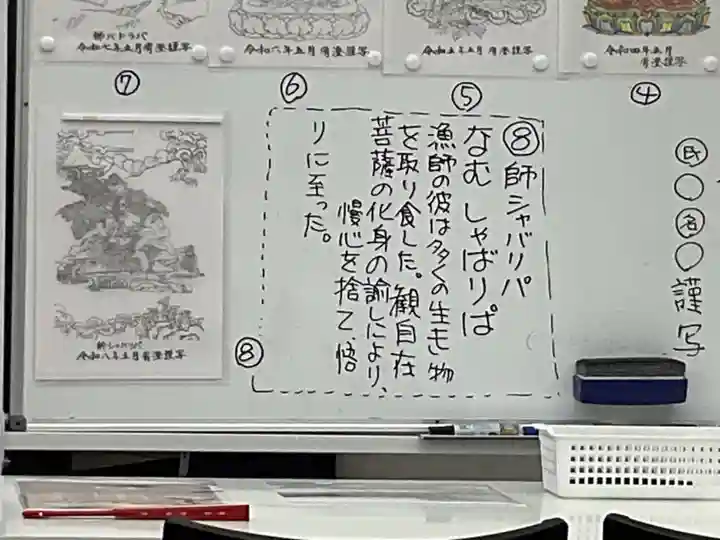 師バドラパ
令和七年五月有澄謹写
令和六年五月有澄謹写
令和五年五月有澄謹写
令和四年五月
有澄謹写
⑦
⑥
⑤
④
⑧師シャバリパ
なむしゃばりぱ
漁師の彼は多くの生き物
を取り食した。観自在
菩薩の化身の諭しにより、
慢心を捨て、悟
りに至った。
⑧
師シャバリパ
令和八年五月有澄謹写
氏
○
名
○
謹
写